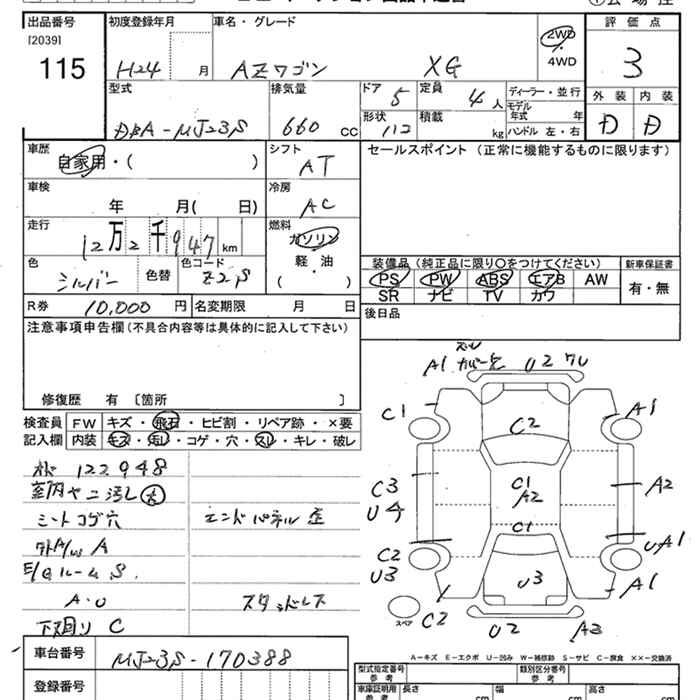 出品番号 初度登録年月 車名・グレード 評価点
[2039]
115 H24 月 AZワゴン XG 2WD・4WD 3
型式 排気量 ドア 5 定員 4 人 ディーラー・並行 外装 内装
モデル年式 年
DBA-MJ23S 660 CC 形状 112 積載 kg ハンドル 左・右 D D
車歴 シフト セールスポイント (正常に機能するものに限ります)
自家用・( ) AT
車検 冷房
年 月( 日) AC
走行 燃料
12万2千947 km ガソリン
色 色コード 軽・油
シルバー 色替 Z2S ( )
装備品 (純正品に限り○をつけてください) 新車保証書
PS PW ABS エアB AW 有・無
SR ナビ TV カワ
R券 10,000 円 名変期限 月 日
後日品
注意事項申告欄(不具合内容等は具体的に記入して下さい)
修復歴 有 〔箇所 〕
検査員 FW キズ・飛石・ヒビ割・リペア跡・×要
記入欄 内装 キズ・汚レ・コゲ・穴・スレ・キレ・破レ
122948
シートコゲ穴
エンドパネル
A
E/Gルーム S
A.O
スタッドレス
下廻り C
A1 U2
C1 C2 A1
C3 C1 A2
U4 A2
C1
C2 A1
U3 U3 A1
スペア C2 U2 A3
A-キズ E-エクボ U-凹み W-補修跡 S-サビ C-腐食 ××-交換済
車台番号 MJ23S-170388
登録番号
型式指定番号 類別区分番号
参考 参考
車庫証明用 長さ 幅 高さ
参考 cm cm cm